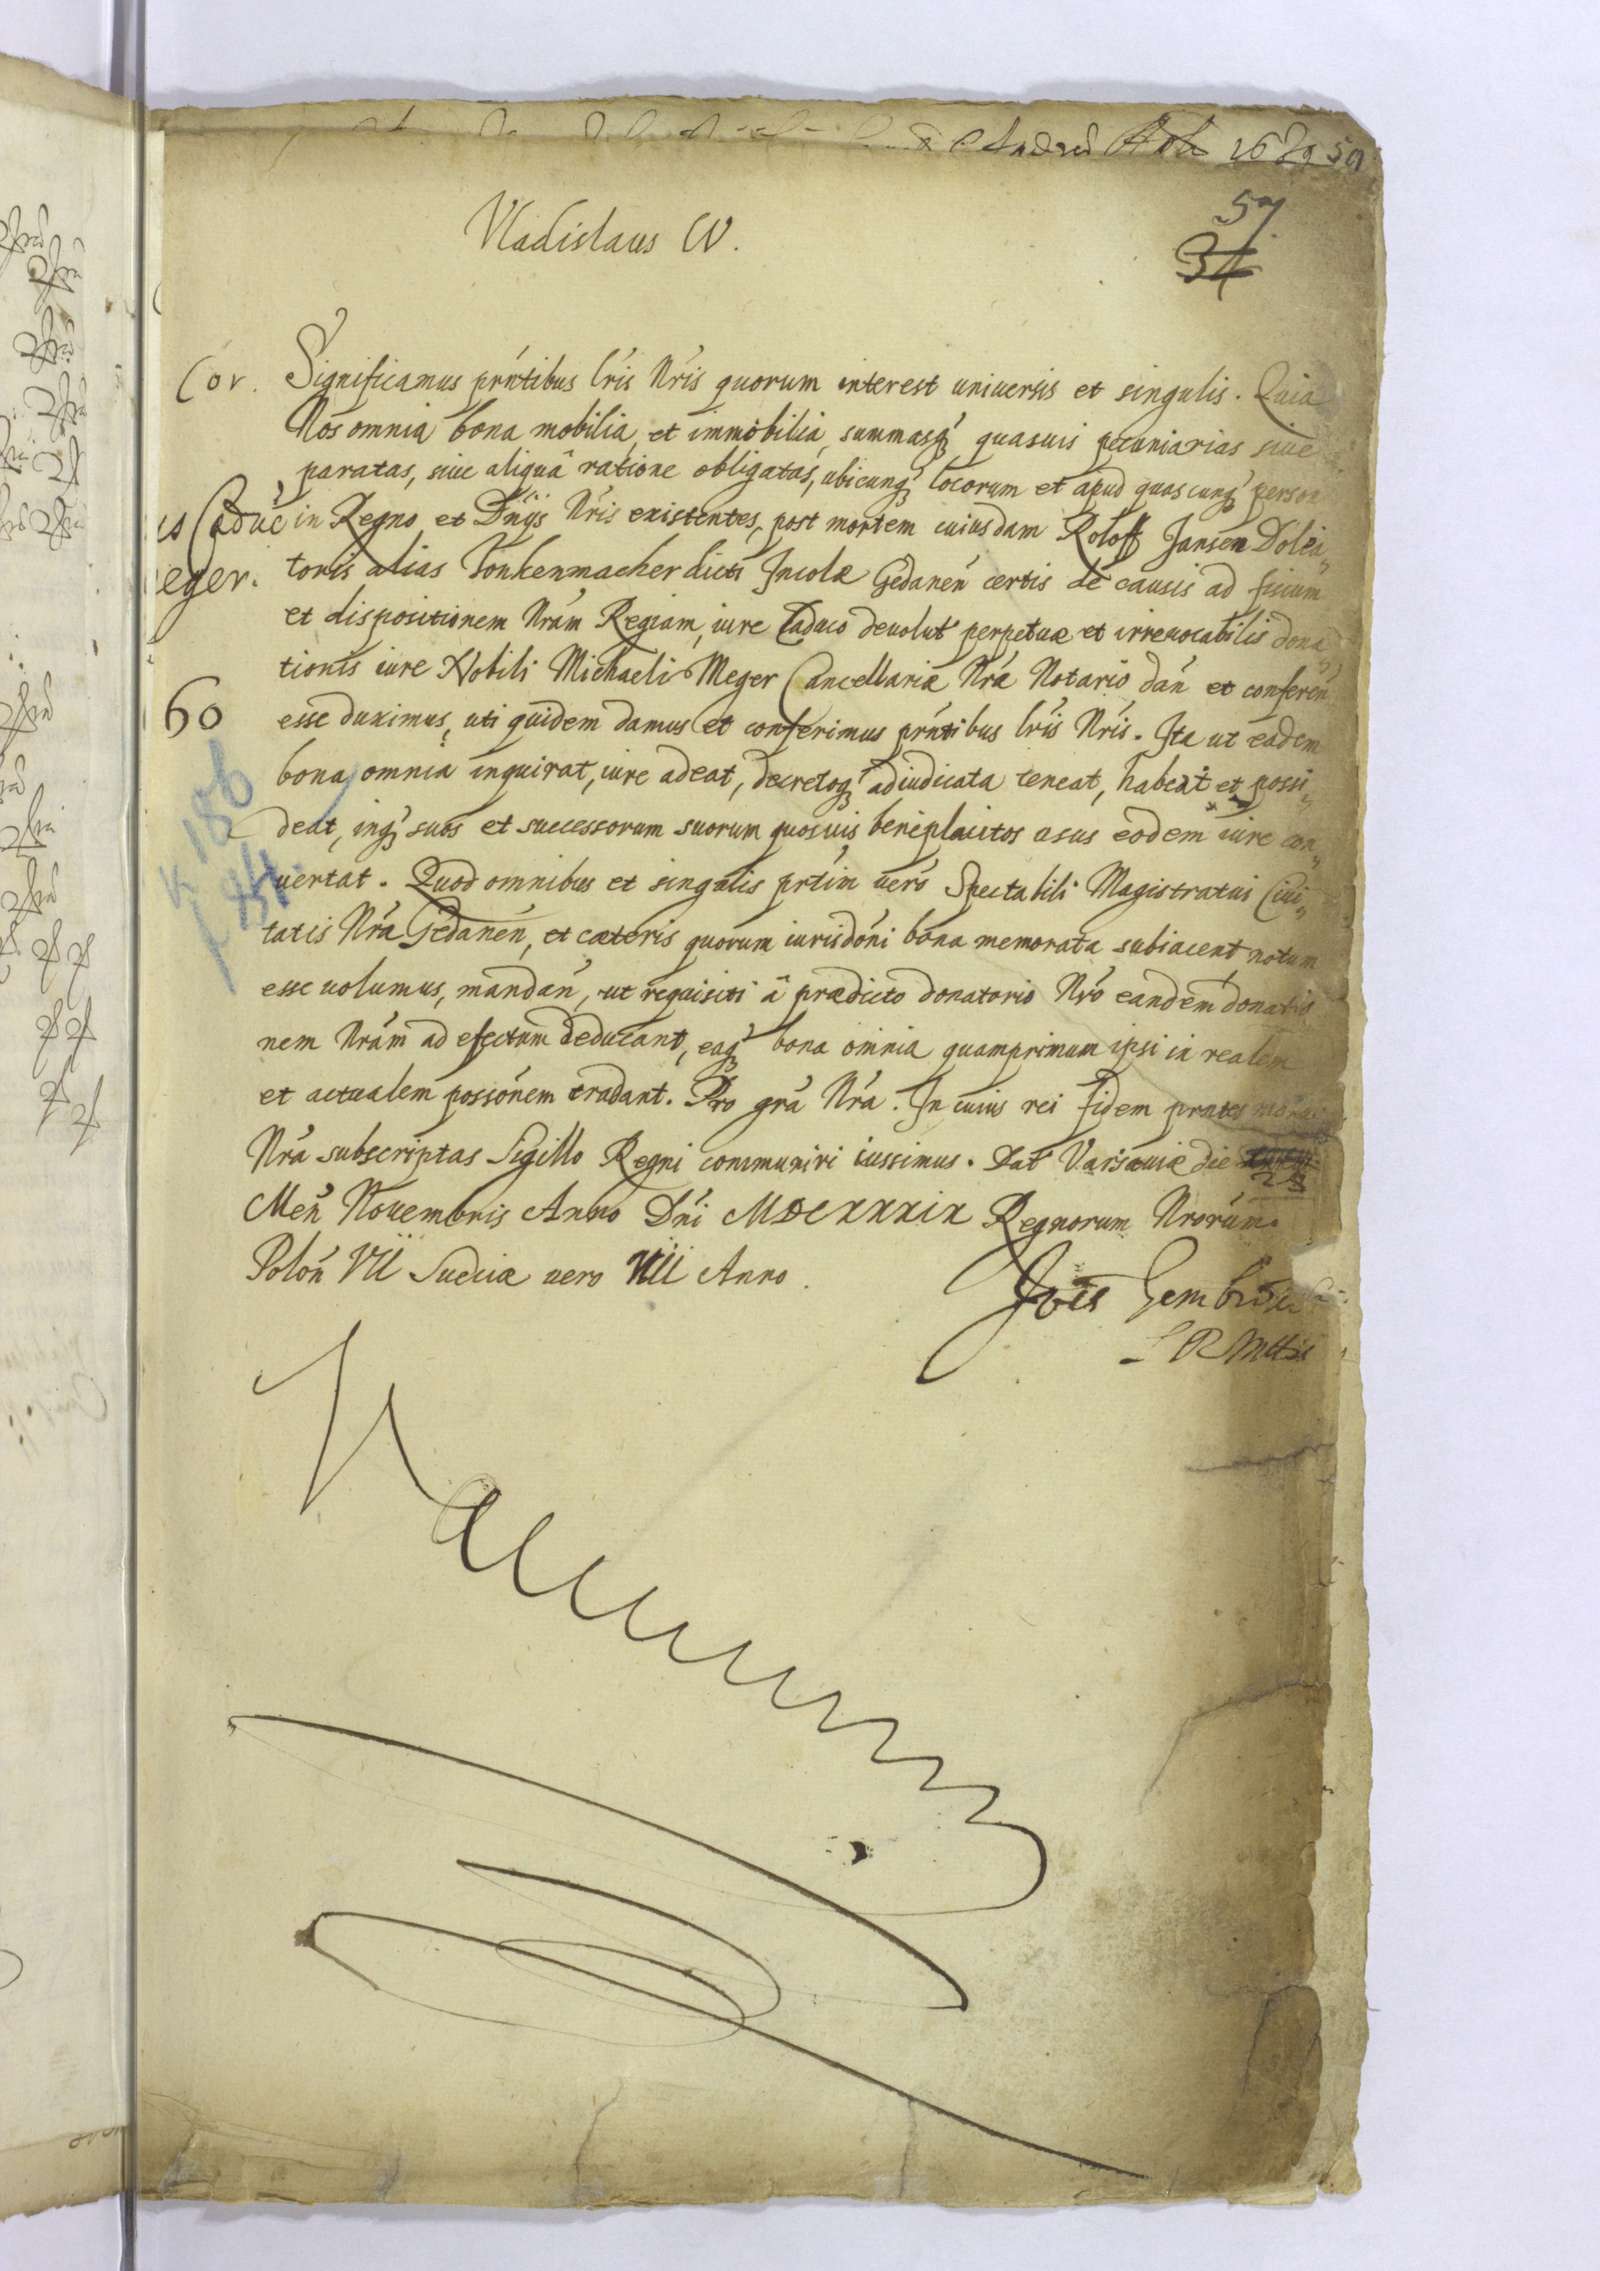 1639 59
Vladislaus IV.
57
34
Cor.
Significamus prńtibus lŕis Nŕis quorum interest uniuersis et singulis. Quia
Nos omnia bona mobilia et immobilia, summasq́ quasuis pecuniarias siue
paratas, siue aliquâ ratione obligatas, ubicunq́ locorum et apud quascunq́ person
us Caduc
in Regno et Dńijs Nŕis existentes, post mortem cuiusdam Roloff Jansen Dolea„
eger.
toris alias Tonkenmacher dicti Incolæ Gedaneń certis de causis ad fiscum
et dispositionem Nŕam Regiam, iure Caduco deuolut́ perpetuæ et irreuocabilis dona„
tionis iure Nobili Michaeli Meger Cancellariæ Nŕæ Notario dań et confereń
60
esse duximus, uti quidem damus et conferimus prńtibus lŕis Nŕis. Ita ut eadem
bona omnia inquirat, iure adeat, decretoq́ adiudicata teneat, habeat et possi„
deat, inq́ suos et successorum suorum quosuis beneplacitos usus eodem iure con„
uertat. Quod omnibus et singulis prtím uero Spectabili Magistratui Ciui„
tatis Nŕæ Gedaneń, et cæteris quorum iurisdońi bona memorata subiacent notum
esse uolumus, mandań, ut requisiti â prædicto donatorio Nŕo eandem donatio
nem Nŕam ad efectum deducant, eaq́ bona omnia quamprimum ipsi in realem
et actualem possońem tradant. Pro grá Nŕa. In cuius rei fidem prntes manu
Nŕa subscriptas Sigillo Regni communiri iussimus. Dat́ Varsauiæ die
23
Meń Nouembris Anno Dńi MDCXXXIX Regnorum Nŕorum
Poloń VII Sueciæ uero VIII Anno.